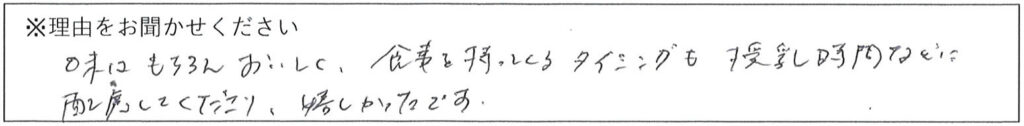 ※理由をお聞かせください
味は もちろん おいしく、食事を持ってくる タイミングも 授乳時間などに
配慮してくださり、嬉しかったです.